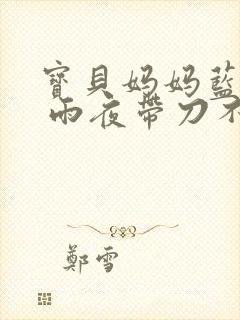 寶貝妈妈藍
雨夜帶刀不
鄭雪